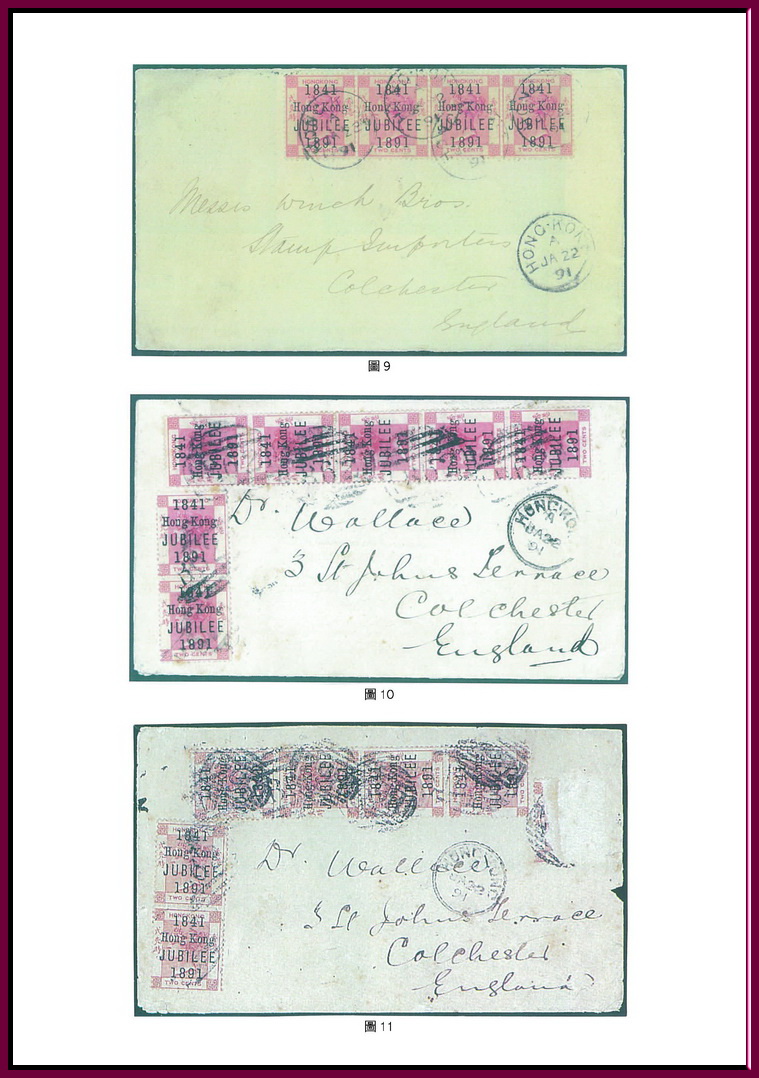 HONGKONG HONGKONG HONGKONG HONGKONG
1841 1841 1841 1841
Hong Kong Hong Kong Hong Kong Hong Kong
JUBILEE JUBILEE JUBILEE JUBILEE
1891 1891 1891 1891
TWO CENTS TWO CENTS TWO CENTS
Messrs Winch Bros.
Stamp Importers
Colchester
England
HONG-KONG
A
JA 22
91
圖9
1841 1841 1841 1841 1841
Hong Kong Hong Kong Hong Kong Hong Kong Hong Kong
JUBILEE JUBILEE JUBILEE JUBILEE JUBILEE
1891 1891 1891 1891 1891
1841
Hong Kong
JUBILEE
1891
TWO CENTS
1841
Hong Kong
JUBILEE
1891
TWO CENTS
Dr. Wallace
3 St Johns Terrace
Colchester
England
HONG KO
A
JA 22
91
圖10
1841 1841 1841 1841
Hong Kong Hong Kong Hong Kong Hong Kong
JUBILEE JUBILEE JUBILEE JUBILEE
1891 1891 1891 1891
1841
Hong Kong
JUBILEE
1891
TWO CENTS
HONGKONG
1841
Hong Kong
JUBILEE
1891
TWO CENTS
Dr. Wallace
3 St Johns Terrace
Colchester
England
HONG KONG
JA 22
91
圖11